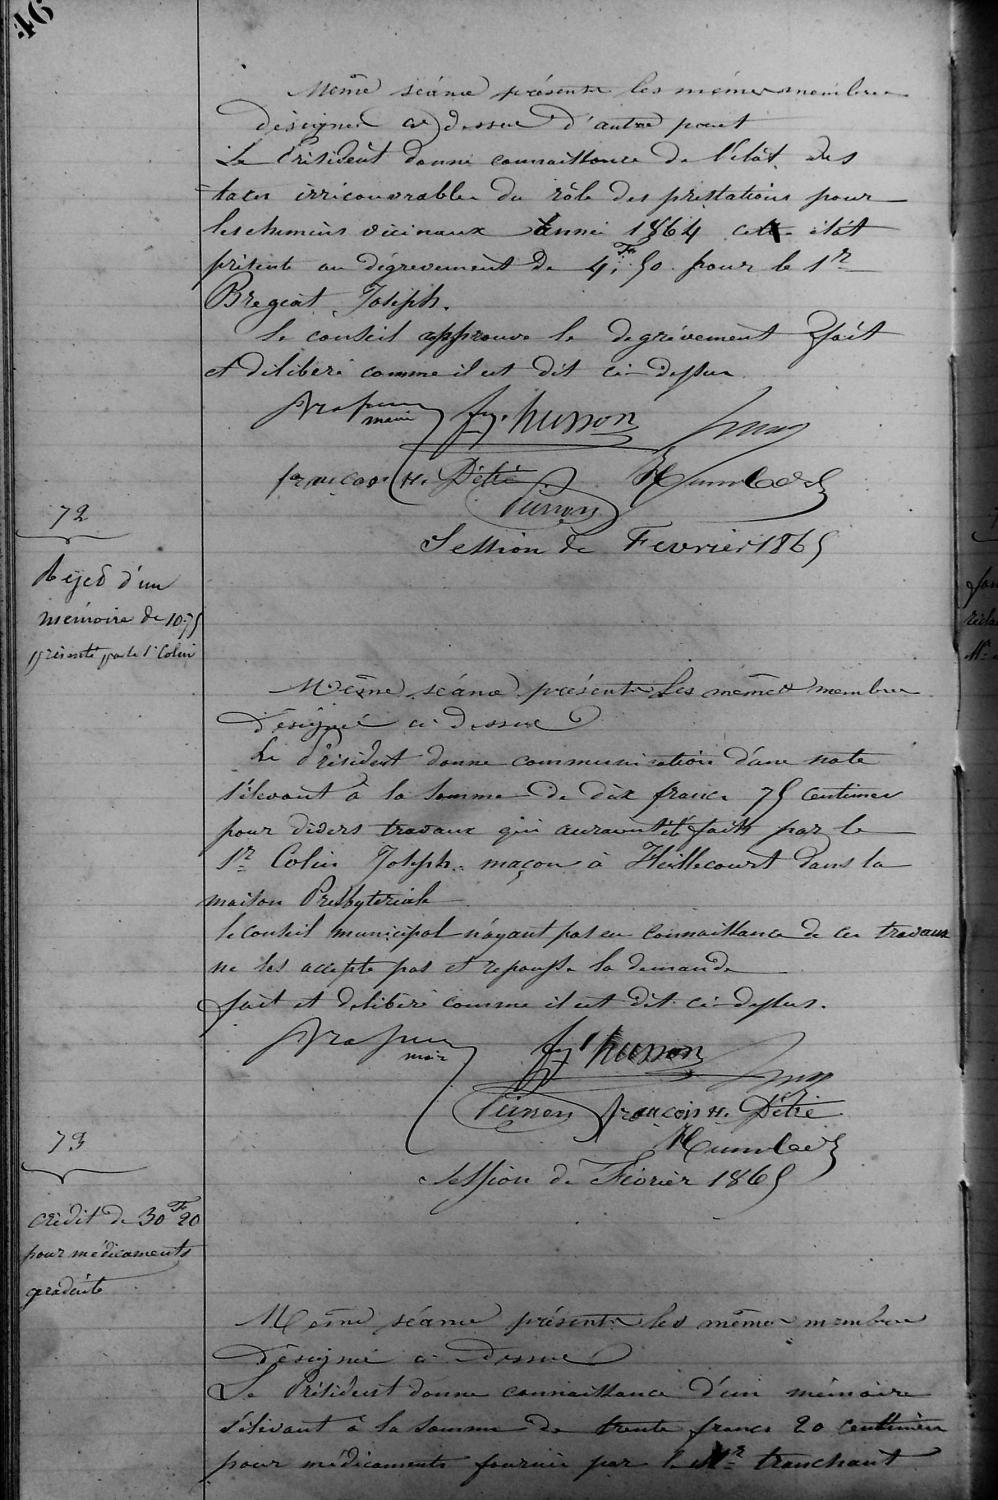 46
Même séance présents les mêmes membres
désignés ci dessus d'autre part
Le Président donne connaissance de l'état des
taxes irrécouvrables du rôle des prestations pour
les chemins vicinaux année 1864 cet état
présente un dégrèvement de 4F,50 pour le Sr
Bregeat Joseph.
Le conseil approuve le dégrèvement fait
et délibéré comme il est dit ci-dessus
maire fx. husson
françois H. Pétré Humbert
Session de Fevrier 1865
72
Rejed d'un
mémoire de 10.75
présenté par le Sr Colin
Même séance présents Les mêmes membres
désignés ci dessus
Le Président donne communication d'une note
s'élevant à la somme de dix francs 75 centimes
pour divers travaux qui auraient été faits par le
Sr Colin Joseph maçon à Heillecourt dans la
maison Presbytériale
le conseil municipal n'ayant pas eu connaissance de ces travaux
ne les accepte pas et repousse la demande
fait et délibéré comme il est dit ci-dessus.
maire fx husson
françois H. Pétré
Humbert
Session de Février 1865
73
crédit de 30F 20
pour médicaments
gratuits
Même séance présents les mêmes membres
désignés ci-dessus
Le Président donne connaissance d'un mémoire
s'élevant à la somme de trente francs 20 centimes
pour médicaments fournis par le Mr tranchant